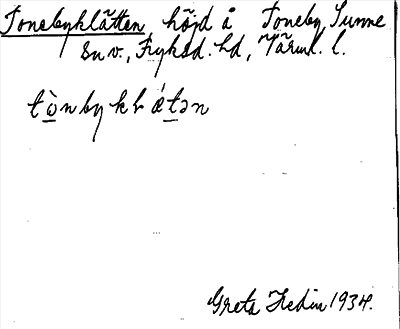 Tonebyklätten, höjd å Toneby, Sunne
sn v., Fryksd. hd, Värml. l.
tò̲nbyklǽt̲ən
Greta Hedin 1934.